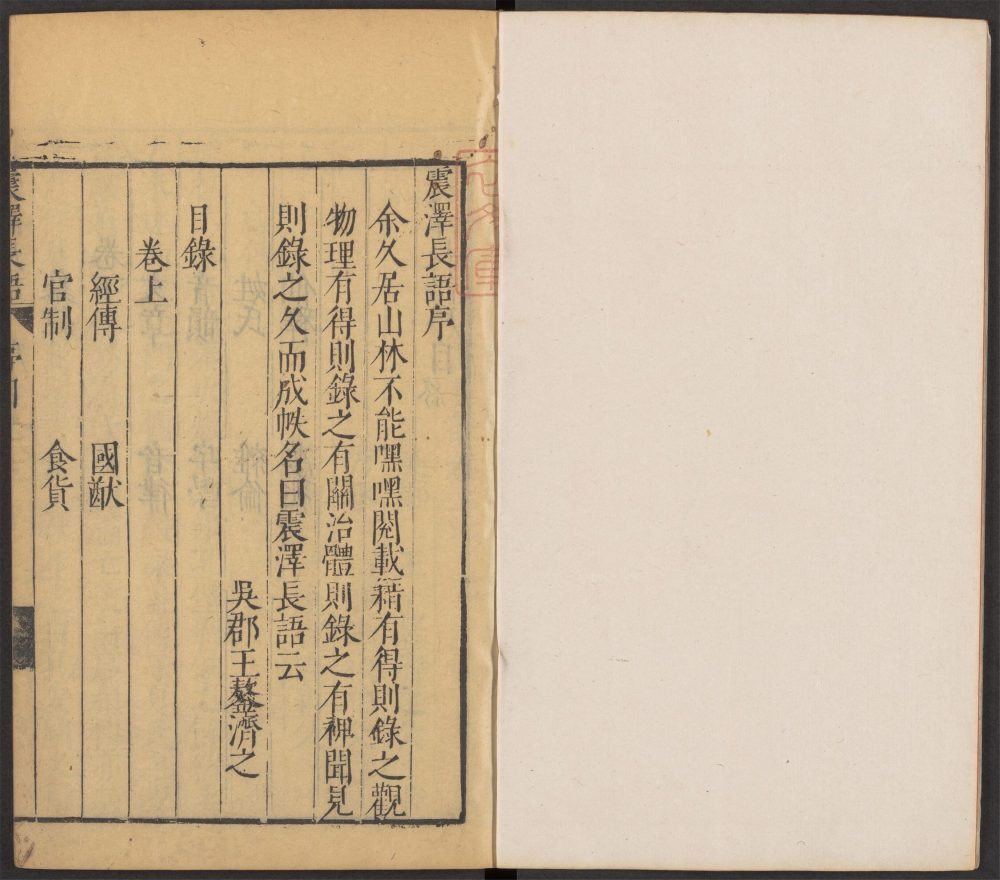 震澤長語序
余久居山林不能嘿嘿閱載籍有得則錄之觀
物理有得則錄之有關治體則錄之有裨聞見
則錄之久而成帙名曰震澤長語云
吳郡王鏊濟之
目錄
卷上
經傳 國猷
官制 食貨
震澤長語